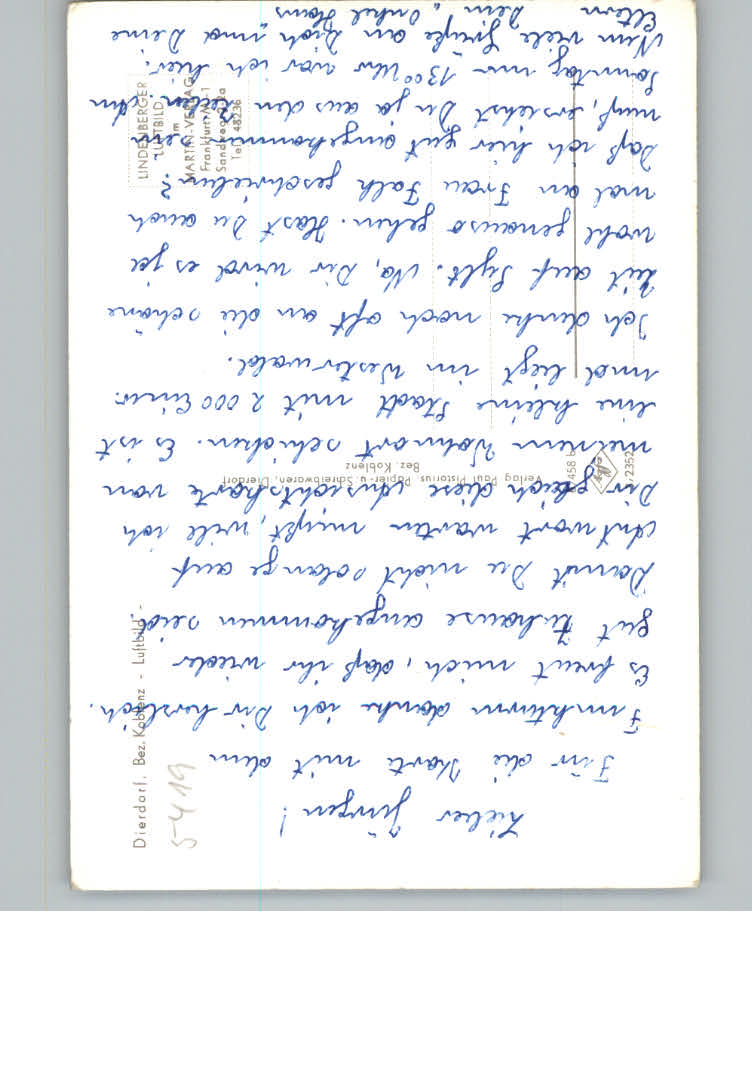 Lieber Jürgen!
Für die Karte mit dem
Funkturm danke ich Dir herzlich.
Es freut mich, daß ihr wieder
gut zuhause angekommen seid.
Damit Du nicht solange auf
Antwort warten mußt, will ich
Dir gleich diese Ansichtskarte von
meinem Wohnort schicken. Es ist
eine kleine Stadt mit 2 000 Einw.
und liegt im Westerwald.
Ich denke noch oft an die schöne
Zeit auf Sylt. Na, Dir wird es ja
wohl genauso gehen. Hast Du auch
mal an Frau Falk geschrieben?
Daß ich hier gut angekommen sein
muß, ersiehst Du ja aus den
Sonntag um 13⁰⁰ Uhr war ich hier.
Nun viele Grüße an Dich und Deine
Eltern Dein "Onkel Hans
Dierdorf, Bez. Koblenz - Luftbild -
5419
LINDENBERGER
LUFTBILD
im
MARTIN-VERLAG
Frankfurt/M.-1
Tel. 48236
Verlag Paul Pistorius, Papier- u. Schreibwaren, Dierdorf
Bez. Koblenz